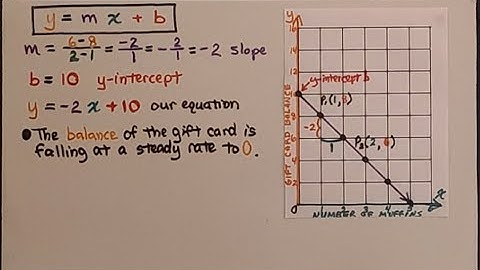 y = m x + b
m = 6-8/2-1 = -2/1 = -2/1 = -2 slope
b = 10 y-intercept
y = -2x + 10 our equation
● The balance of the gift card is
falling at a steady rate to 0.
y
16
14
12
y-intercept b
10
8
P₁(1,8)
-2
6
1
P₂(2,6)
4
2
0
1 2 3 4 5 6
x
GIFT CARD BALANCE
NUMBER OF MUFFINS